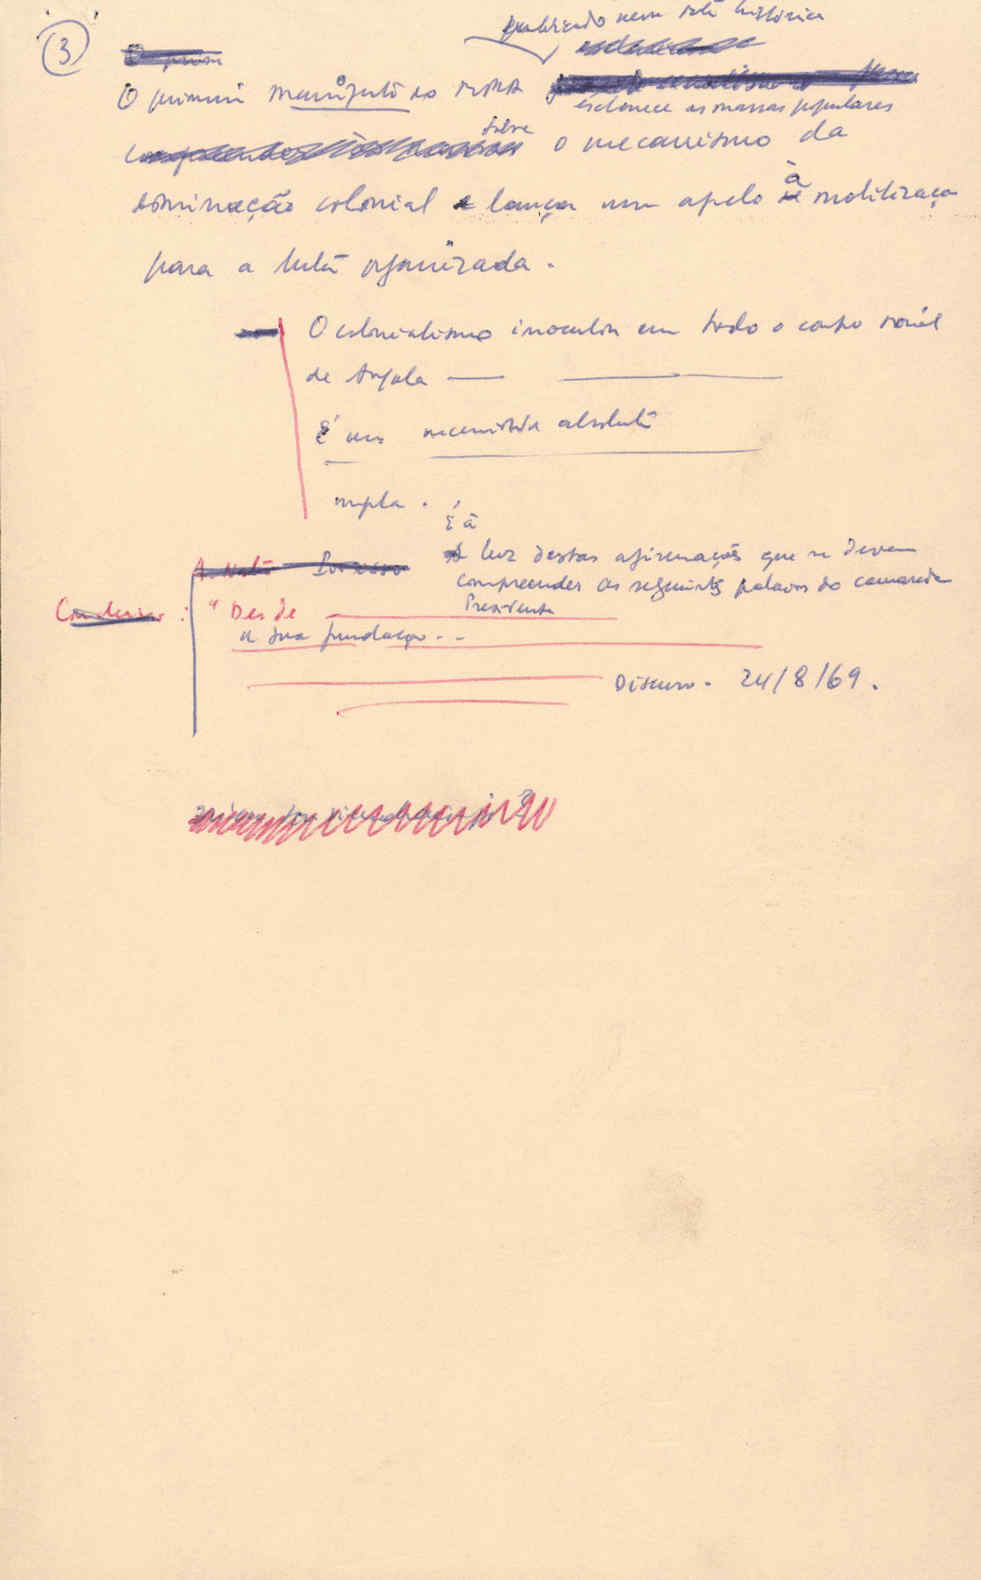 3
publicado nessa data histórica
O primeiro manifesto do MPLA
esclarece as massas populares
sobre o mecanismo da
dominação colonial e lança um apelo à mobilização
para a luta organizada.
O colonialismo inoculou em todo o corpo social
de Angola —— ——
É uma necessidade absoluta
mpla.
É à
luz destas afirmações que se devem
compreender as seguintes palavras do camarada
Presidente
Concluir : " Desde
a sua fundação . . -
Discurso. 24/8/69.